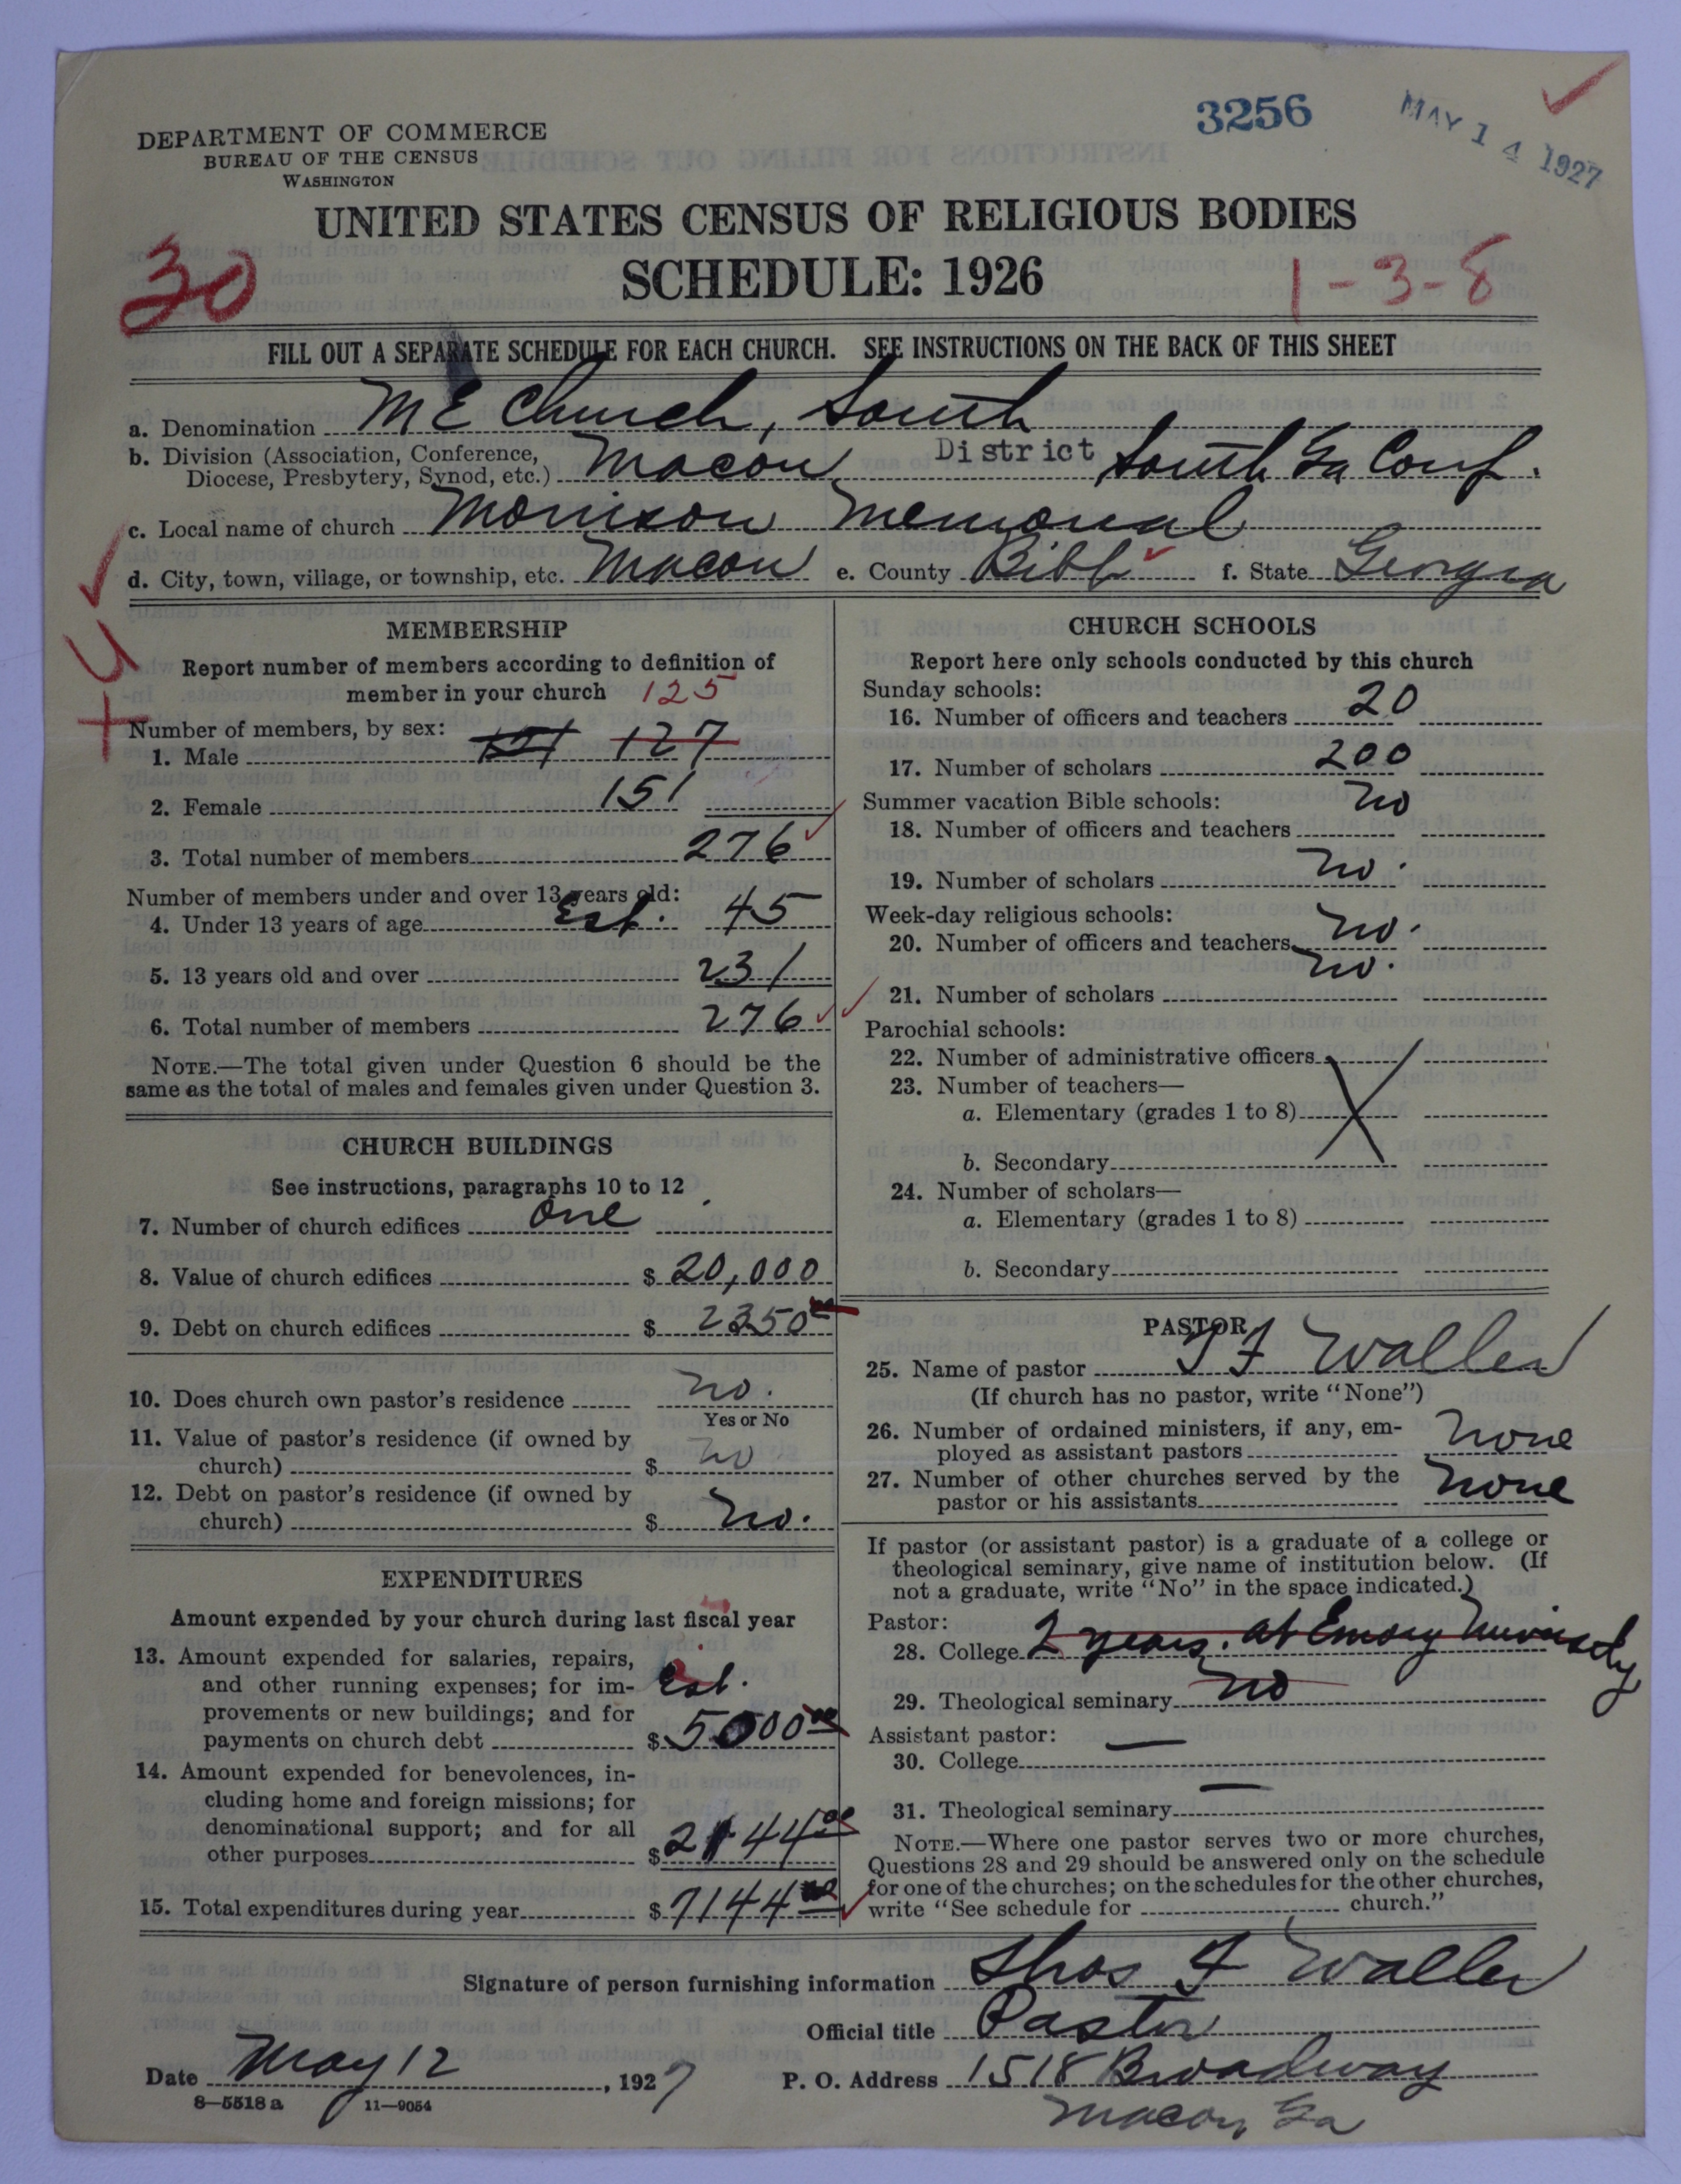 3256
MAY 14 1927
DEPARTMENT OF COMMERCE
BUREAU OF THE CENSUS
WASHINGTON
UNITED STATES CENSUS OF RELIGIOUS BODIES
SCHEDULE: 1926
30
1-3-8
FILL OUT A SEPARATE SCHEDULE FOR EACH CHURCH. SEE INSTRUCTIONS ON THE BACK OF THIS SHEET
a. Denomination M E Church, South
b. Division (Association, Conference, Diocese, Presbytery, Synod, etc.) Macon District South Ga Conf.
c. Local name of church Morrison Memorial
d. City, town, village, or township, etc. Macon e. County Bibb f. State Georgia
MEMBERSHIP
Report number of members according to definition of
member in your church 125
Number of members, by sex:
1. Male 127
2. Female 151
3. Total number of members 276
Number of members under and over 13 years old:
4. Under 13 years of age Est. 45
5. 13 years old and over 231
6. Total number of members 276
NOTE.—The total given under Question 6 should be the
same as the total of males and females given under Question 3.
CHURCH BUILDINGS
See instructions, paragraphs 10 to 12
7. Number of church edifices One
8. Value of church edifices $ 20,000
9. Debt on church edifices $ 2350 00
10. Does church own pastor's residence no.
Yes or No
11. Value of pastor's residence (if owned by
church) $ no
12. Debt on pastor's residence (if owned by
church) $ no.
EXPENDITURES
Amount expended by your church during last fiscal year
13. Amount expended for salaries, repairs,
and other running expenses; for im-
provements or new buildings; and for
payments on church debt Est. $ 5000 00
14. Amount expended for benevolences, in-
cluding home and foreign missions; for
denominational support; and for all
other purposes $ 2144 00
15. Total expenditures during year $ 7144 00
CHURCH SCHOOLS
Report here only schools conducted by this church
Sunday schools:
16. Number of officers and teachers 20
17. Number of scholars 200
Summer vacation Bible schools:
18. Number of officers and teachers no
19. Number of scholars no.
Week-day religious schools:
20. Number of officers and teachers no.
21. Number of scholars no.
Parochial schools:
22. Number of administrative officers
23. Number of teachers—
a. Elementary (grades 1 to 8)
b. Secondary
24. Number of scholars—
a. Elementary (grades 1 to 8)
b. Secondary
PASTOR
25. Name of pastor T F Waller
(If church has no pastor, write "None")
26. Number of ordained ministers, if any, em-
ployed as assistant pastors none
27. Number of other churches served by the
pastor or his assistants none
If pastor (or assistant pastor) is a graduate of a college or
theological seminary, give name of institution below. (If
not a graduate, write "No" in the space indicated.)
Pastor:
28. College 2 years. at Emory University
29. Theological seminary no
Assistant pastor:
30. College —
31. Theological seminary —
NOTE.—Where one pastor serves two or more churches,
Questions 28 and 29 should be answered only on the schedule
for one of the churches; on the schedules for the other churches,
write "See schedule for church."
Signature of person furnishing information Thos F Waller
Official title Pastor
Date May 12, 1927 P. O. Address 1518 Broadway
Macon, Ga
8—5518 a 11—9054